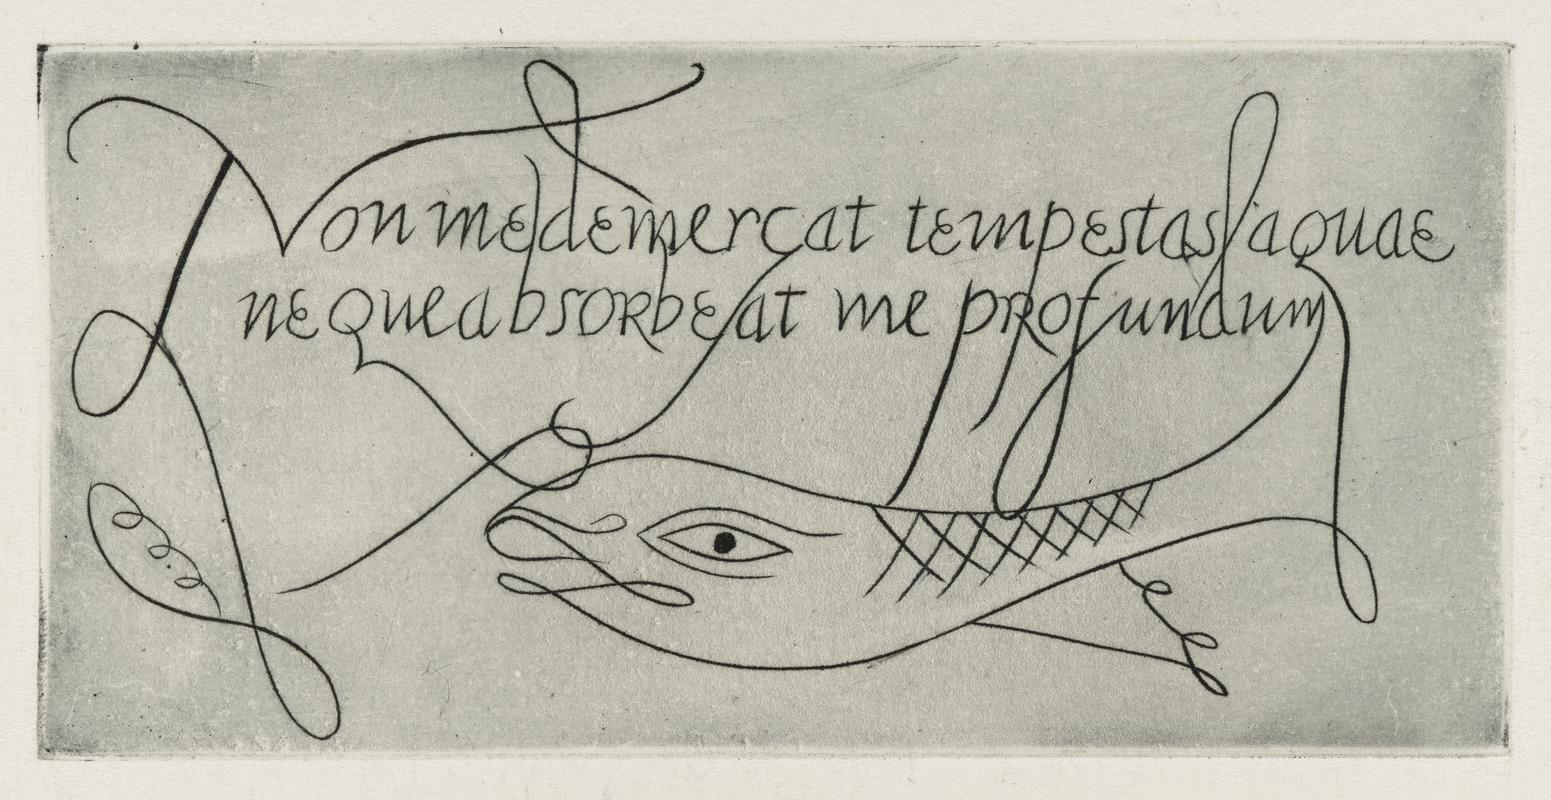 Non me demercat tempestas aquae
neque absorbeat me profundum